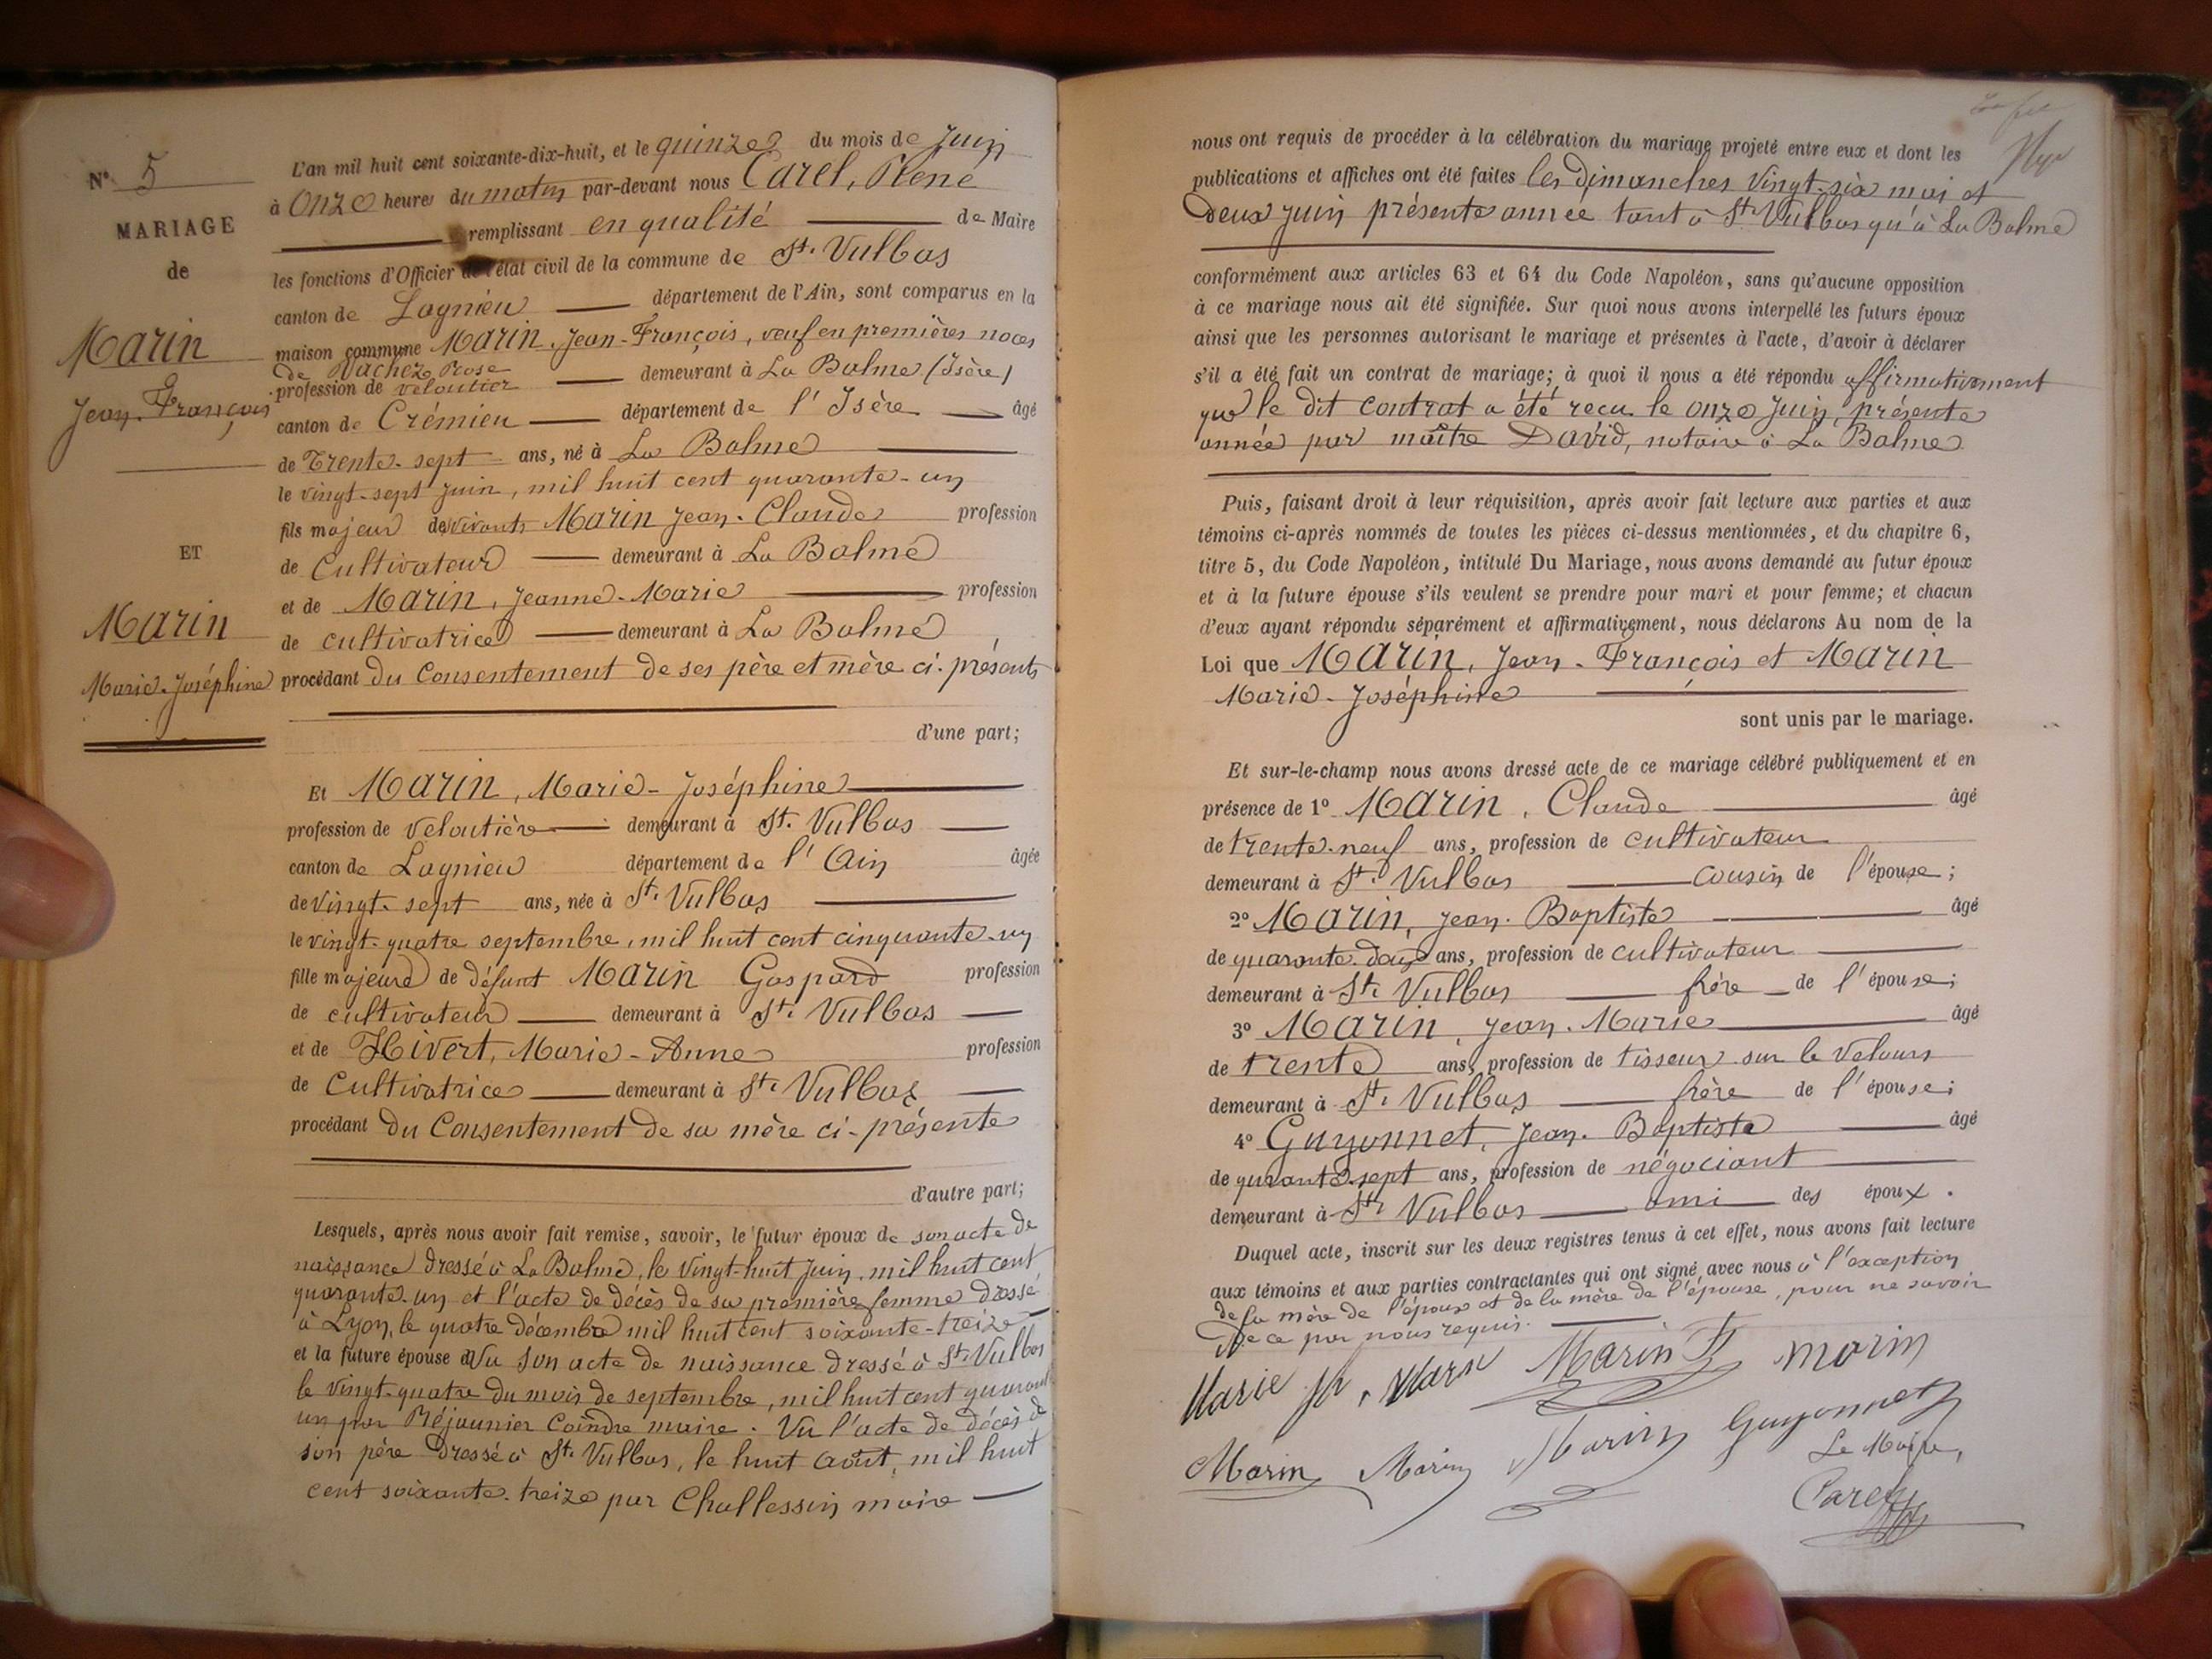 N° 5
MARIAGE
de
Marin
Jean-François
ET
Marin
Marie-Joséphine
L'an mil huit cent soixante-dix-huit, et le quinze du mois de Juin
à onze heures du matin par-devant nous Carel, René
remplissant en qualité de Maire
les fonctions d'Officier de l'état civil de la commune de St. Vulbas
canton de Lagnieu département de l'Ain, sont comparus en la
maison commune Marin, Jean-François, veuf en premières noces
de Vachez Rose
profession de veloutier demeurant à La Balme (Isère)
canton de Crémieu département de l'Isère âgé
de Trente-sept ans, né à La Balme
le vingt-sept juin, mil huit cent quarante-un
fils majeur de vivants Marin Jean-Claude profession
de Cultivateur demeurant à La Balme
et de Marin, Jeanne-Marie profession
de cultivatrice demeurant à La Balme
procédant du Consentement de ses père et mère ci-présents
d'une part;
Et Marin, Marie-Joséphine
profession de Veloutière demeurant à St. Vulbas
canton de Lagnieu département de l'Ain âgée
de vingt-sept ans, née à St. Vulbas
le vingt-quatre septembre, mil huit cent cinquante-un
fille majeure de défunt Marin Gaspard profession
de cultivateur demeurant à St. Vulbas
et de Hivert, Marie-Anne profession
de Cultivatrice demeurant à St. Vulbas
procédant du Consentement de sa mère ci-présente
d'autre part;
Lesquels, après nous avoir fait remise, savoir, le futur époux de son acte de
naissance dressé à La Balme, le vingt-huit juin, mil huit cent
quarante-un et l'acte de décès de sa première femme dressé
à Lyon, le quatre décembre mil huit cent soixante-treize
et la future épouse Vu son acte de naissance dressé à St. Vulbas
le vingt-quatre du mois de septembre, mil huit cent quarant
un par Coindre maire. Vu l'acte de décès de
son père dressé à St. Vulbas, le huit août, mil huit
cent soixante-treize par Challessin maire
nous ont requis de procéder à la célébration du mariage projeté entre eux et dont les
publications et affiches ont été faites les dimanches vingt-six mai et
deux juin présente année tant à St. Vulbas qu'à La Balme
conformément aux articles 63 et 64 du Code Napoléon, sans qu'aucune opposition
à ce mariage nous ait été signifiée. Sur quoi nous avons interpellé les futurs époux
ainsi que les personnes autorisant le mariage et présentes à l'acte, d'avoir à déclarer
s'il a été fait un contrat de mariage; à quoi il nous a été répondu affirmativement
que le dit contrat a été reçu le onze juin, présente
année par maître David, notaire à La Balme
Puis, faisant droit à leur réquisition, après avoir fait lecture aux parties et aux
témoins ci-après nommés de toutes les pièces ci-dessus mentionnées, et du chapitre 6,
titre 5, du Code Napoléon, intitulé Du Mariage, nous avons demandé au futur époux
et à la future épouse s'ils veulent se prendre pour mari et pour femme; et chacun
d'eux ayant répondu séparément et affirmativement, nous déclarons Au nom de la
Loi que Marin, Jean-François et Marin
Marie-Joséphine
sont unis par le mariage.
Et sur-le-champ nous avons dressé acte de ce mariage célébré publiquement et en
présence de 1° Marin, Claude âgé
de trente-neuf ans, profession de cultivateur
demeurant à St. Vulbas cousin de l'épouse;
2° Marin, Jean-Baptiste âgé
de quarante-deux ans, profession de cultivateur
demeurant à St. Vulbas frère de l'épouse;
3° Marin, Jean-Marie âgé
de trente ans, profession de tisseur sur le velours
demeurant à St. Vulbas frère de l'épouse;
4° Guyonnet, Jean-Baptiste âgé
de qurante-sept ans, profession de négociant
demeurant à St. Vulbas ami des époux.
Duquel acte, inscrit sur les deux registres tenus à cet effet, nous avons fait lecture
aux témoins et aux parties contractantes qui ont signé avec nous à l'exception
de la mère de l'époux et de la mère de l'épouse, pour ne savoir
de ce par nous requis.
Marie Marin Marin
Marin Marin Marin Guyonnet
Le Maire,
Carel